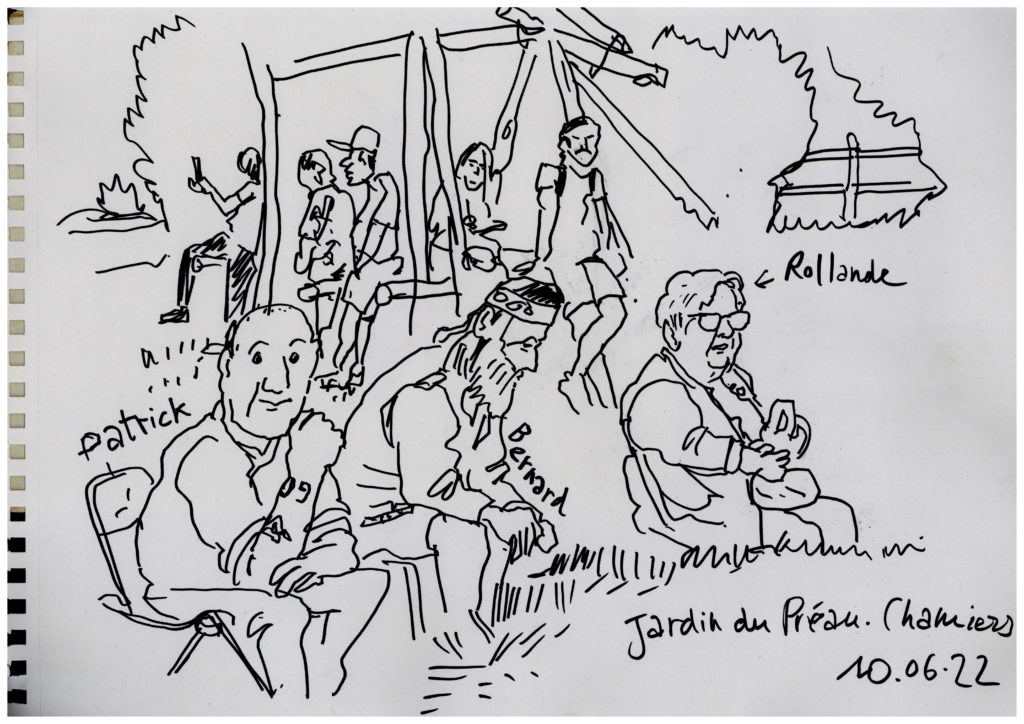 Rollande
Patrick
Bernard
Jardin du Préau. Chamiers
10.06.22